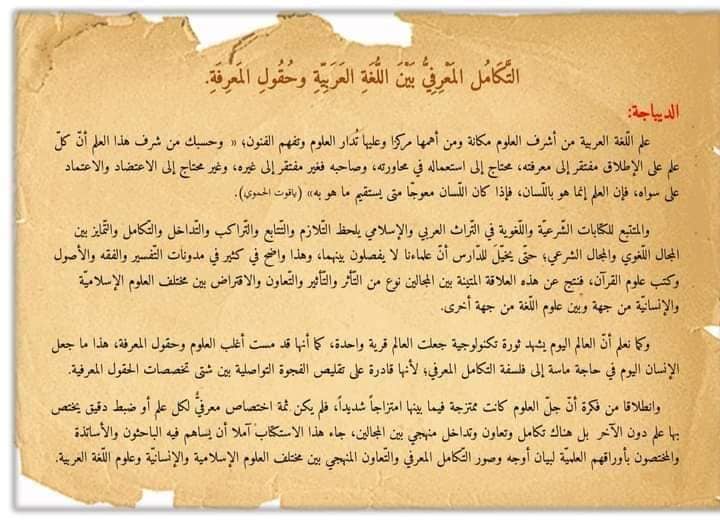 التَّكَامُل المَعْرِفِيُّ بَيْنَ اللُّغَةِ العَرَبِيّةِ وحُقُولِ المَعرِفَةِ.
الديباجة:
علم اللّغة العربية من أشرف العلوم مكانة ومن أهمها مركزا وعليها تُدار العلوم وتفهم الفنون؛ « وحسبك من شرف هذا العلم أنّ كلّ
علم على الإطلاق مفتقر إلى معرفته، محتاج إلى استعماله في محاورته، وصاحبه فغير مفتقر إلى غيره، وغير محتاج إلى الاعتضاد والاعتماد
على سواه، فإن العلم إنما هو باللّسان، فإذا كان اللّسان معوجّا متى يستقيم ما هو به» (ياقوت الحموي).
والمتتبع للكتابات الشّرعيّة واللّغوية في التّراث العربي والإسلامي يلحظ التّلازم والتّتابع والتّراكب والتّداخل والتّكامل والتّمايز بين
المجال اللّغوي والمجال الشرعي؛ حتّى يخيّلَ للدّارس أنّ علماءنا لا يفصلون بينهما، وهذا واضح في كثير في مدونات التّفسير والفقه والأصول
وكتب علوم القرآن، فنتج عن هذه العلاقة المتينة بين المجالين نوع من التّأثر والتّأثير والتّعاون والاقتراض بين مختلف العلوم الإسلاميّة
والإنسانيّة من جهة وبين علوم اللّغة من جهة أخرى.
وكما نعلم أنّ العالم اليوم يشهد ثورة تكنولوجية جعلت العالم قرية واحدة، كما أنها قد مست أغلب العلوم وحقول المعرفة، هذا ما جعل
الإنسان اليوم في حاجة ماسة إلى فلسفة التكامل المعرفي؛ لأنها قادرة على تقليص الفجوة التواصلية بين شتى تخصصات الحقول المعرفية.
وانطلاقا من فكرة أنّ جلّ العلوم كانت ممتزجة فيما بينها امتزاجاً شديداً، فلم يكن ثمة اختصاص معرفيٌّ لكل علم أو ضبط دقيق يختص
بها علم دون الآخر بل هناك تكامل وتعاون وتداخل منهجي بين المجالين، جاء هذا الاستكتاب آملا أن يساهم فيه الباحثون والأساتذة
والمختصون بأوراقهم العلميّة لبيان أوجه وصور التّكامل المعرفي والتّعاون المنهجي بين مختلف العلوم الإسلامية والإنسانيّة وعلوم اللّغة العربية.